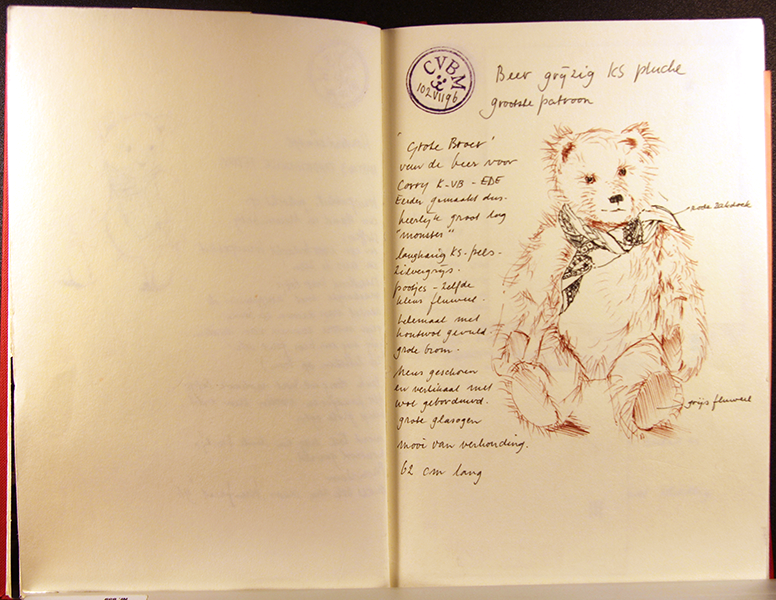 CVBM
102VII96
Beer grijzig KS pluche
grootste patroon
"Grote Broer"
van de beer voor
Corry K-VB - EDE
Eerder gemaakt dus-
heerlijk groot log
"monster"
langharig KS-pels-
zilvergrijs.
pootjes - zelfde
kleur fluweel.
helemaal met
houtwol gevuld
grote brom.
Neus geschoren
en vertikaal met
wol geborduurd.
grote glasogen
mooi van verhouding.
62 cm lang
rode zakdoek
grijs fluweel